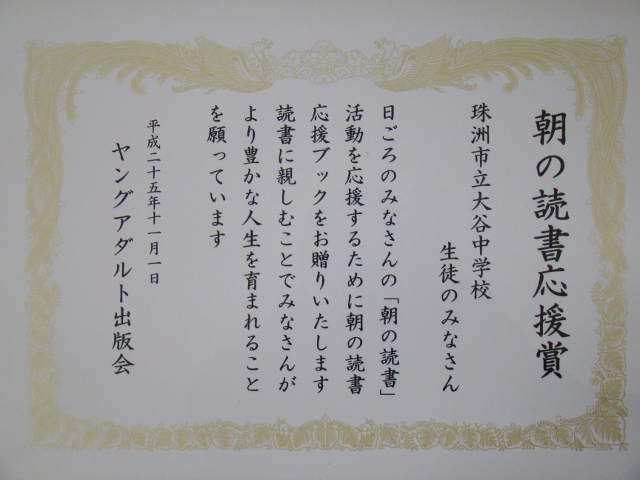 朝の読書応援賞
珠洲市立大谷中学校
生徒のみなさん
日ごろのみなさんの「朝の読書」
活動を応援するために朝の読書
応援ブックをお贈りいたします
読書に親しむことでみなさんが
より豊かな人生を育まれること
を願っています
平成二十五年十一月一日
ヤングアダルト出版会